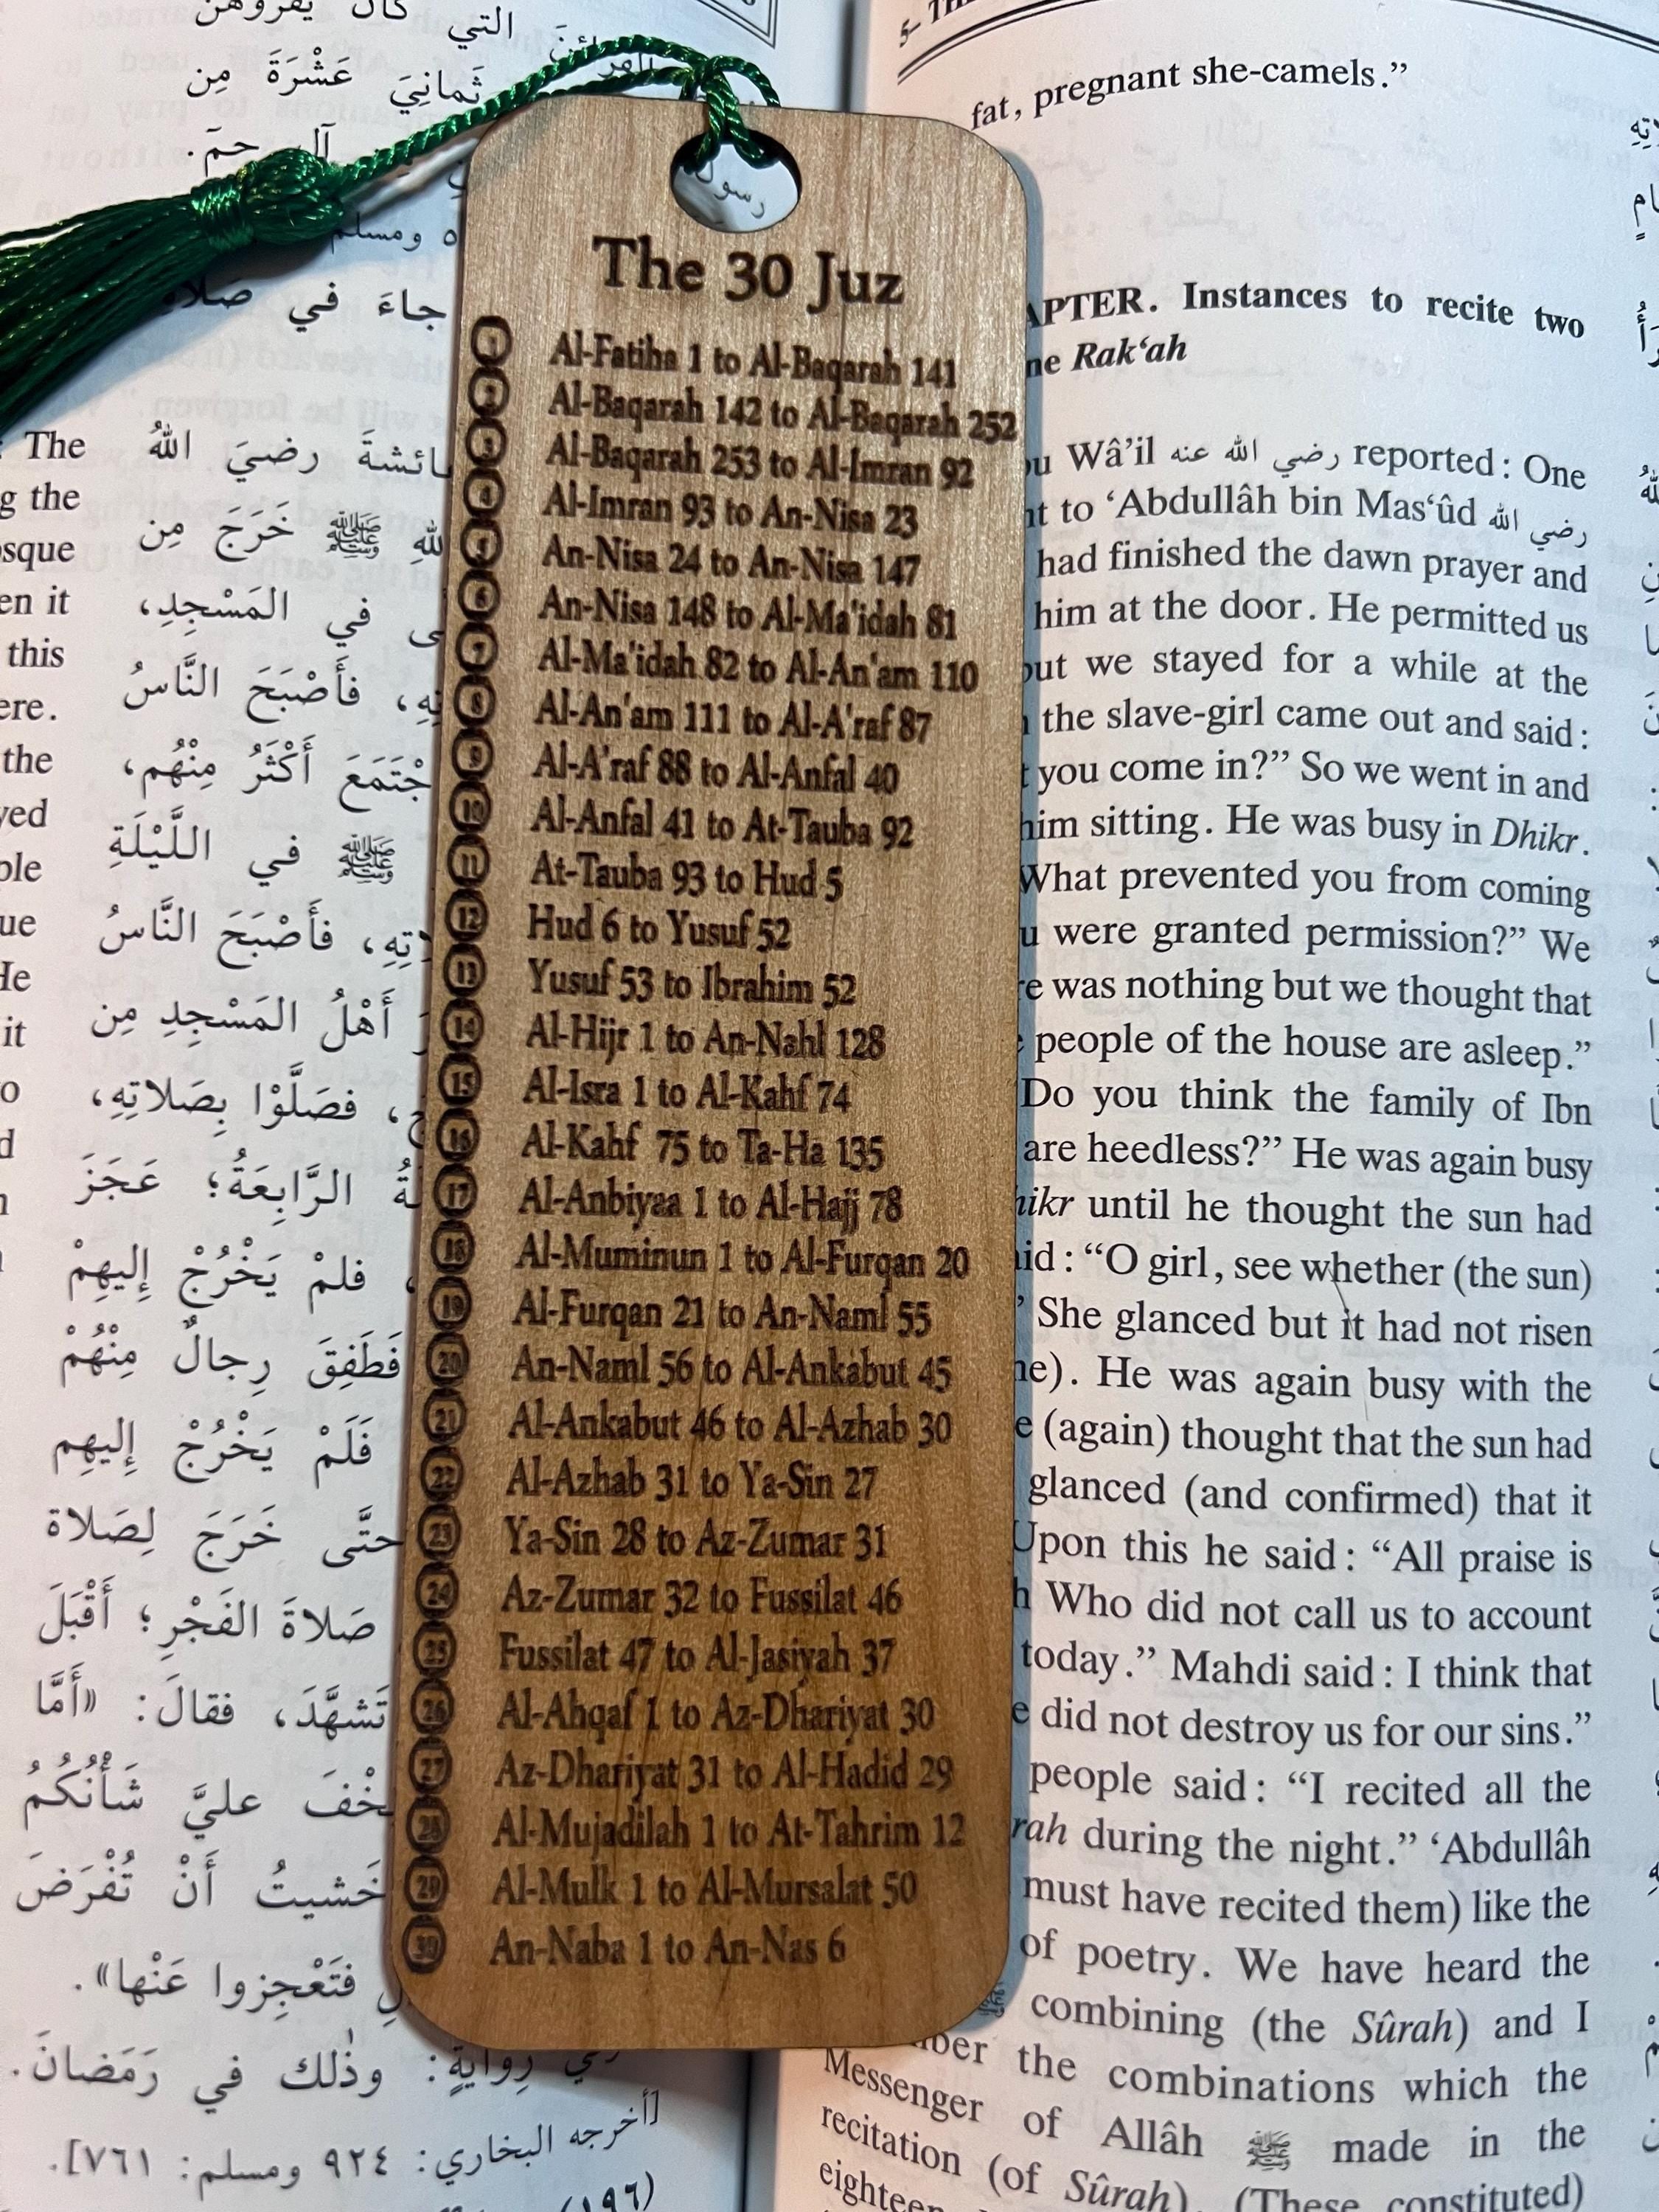 التي كان يقرؤهن
ثَمانِيَ عَشْرَةَ مِن
آلِ حمَ.
ومسلم
جاءَ في صَلاة
The
ائشةَ رضيَ اللهُ
g the
للهِ ﷺ خَرَجَ مِن
osque
en it
في المَسْجِدِ،
this
فأَصْبَحَ النَّاسُ
ere.
the
جْتَمَعَ أَكْثَرُ مِنْهُم،
yed
ﷺ في اللَّيْلَةِ
ple
ue
فأَصْبَحَ النَّاسُ
He
أَهْلُ المَسْجِدِ مِن
it
فصَلَّوْا بِصَلاتِهِ،
الرَّابِعَةُ؛ عَجَزَ
فلمْ يَخْرُجْ إِليهِمْ
فَطَفِقَ رِجالٌ مِنْهُمْ
فَلَمْ يَخْرُجْ إِليهِم
حتَّى خَرَجَ لِصَلاة
صَلاةَ الفَجْرِ؛ أَقْبَلَ
تَشهَّدَ، فقالَ: «أَمَّا
خْفَ عليَّ شَأْنُكُمُ
خَشيتُ أَنْ تُفْرَضَ
فتَعْجِزوا عَنْها».
رِوايةٍ: وذٰلك في رَمَضانَ.
[أخرجه البخاري: ٩٢٤ ومسلم: ٧٦١].
(١٩٦)
رسول
The 30 Juz
1 Al-Fatiha 1 to Al-Baqarah 141
2 Al-Baqarah 142 to Al-Baqarah 252
3 Al-Baqarah 253 to Al-Imran 92
4 Al-Imran 93 to An-Nisa 23
5 An-Nisa 24 to An-Nisa 147
6 An-Nisa 148 to Al-Ma'idah 81
7 Al-Ma'idah 82 to Al-An'am 110
8 Al-An'am 111 to Al-A'raf 87
9 Al-A'raf 88 to Al-Anfal 40
10 Al-Anfal 41 to At-Tauba 92
11 At-Tauba 93 to Hud 5
12 Hud 6 to Yusuf 52
13 Yusuf 53 to Ibrahim 52
14 Al-Hijr 1 to An-Nahl 128
15 Al-Isra 1 to Al-Kahf 74
16 Al-Kahf 75 to Ta-Ha 135
17 Al-Anbiyaa 1 to Al-Hajj 78
18 Al-Muminun 1 to Al-Furqan 20
19 Al-Furqan 21 to An-Naml 55
20 An-Naml 56 to Al-Ankabut 45
21 Al-Ankabut 46 to Al-Azhab 30
22 Al-Azhab 31 to Ya-Sin 27
23 Ya-Sin 28 to Az-Zumar 31
24 Az-Zumar 32 to Fussilat 46
25 Fussilat 47 to Al-Jasiyah 37
26 Al-Ahqaf 1 to Az-Dhariyat 30
27 Az-Dhariyat 31 to Al-Hadid 29
28 Al-Mujadilah 1 to At-Tahrim 12
29 Al-Mulk 1 to Al-Mursalat 50
30 An-Naba 1 to An-Nas 6
fat, pregnant she-camels.”
APTER. Instances to recite two
ne Rak‘ah
u Wâ’il رضي الله عنه reported: One
nt to ‘Abdullâh bin Mas‘ûd رضي الله
had finished the dawn prayer and
him at the door. He permitted us
but we stayed for a while at the
the slave-girl came out and said:
you come in?” So we went in and
him sitting. He was busy in Dhikr.
What prevented you from coming
u were granted permission?” We
re was nothing but we thought that
people of the house are asleep.”
Do you think the family of Ibn
are heedless?” He was again busy
hikr until he thought the sun had
aid: “O girl, see whether (the sun)
She glanced but it had not risen
ne). He was again busy with the
e (again) thought that the sun had
glanced (and confirmed) that it
Upon this he said: “All praise is
h Who did not call us to account
today.” Mahdi said: I think that
e did not destroy us for our sins.”
people said: “I recited all the
rah during the night.” ‘Abdullâh
must have recited them) like the
of poetry. We have heard the
combining (the Sûrah) and I
ber the combinations which the
Messenger of Allâh ﷺ made in the
recitation (of Sûrah). (These constituted)
eighteen